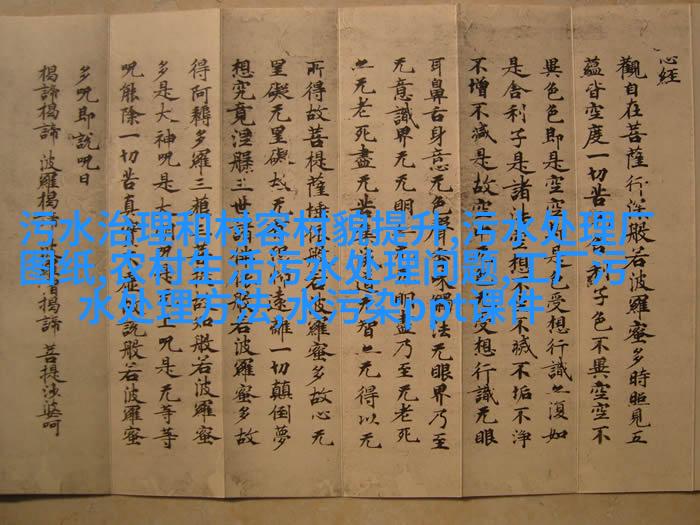 心经
觀自在菩薩行深般若波羅蜜多時照見五
蘊皆空度一切苦 舍利子色不異空空不
異色色即是空空 是色受想行識亦復如
是舍利子是諸法空相不生不滅不垢不淨
不增不減是故空 受想行識无眼
耳鼻舌身意无色聲香味觸法无眼界乃至
无意識界无无明 无明盡乃至无老死
亦无老死盡无苦集 道无智亦无得以无
所得故菩提薩埵依般若波羅蜜多故心无
罣礙无罣礙故无 恐怖遠離一切顛倒夢
想究竟涅槃三世諸佛依般若波羅蜜多故
得阿耨多羅三藐三菩 故知般若波羅蜜
多是大神呪是大明呪是 上呪是无等等
呪能除一切苦真實不虛 說般若波羅蜜
多呪即說呪曰
揭諦揭諦 波羅揭諦 僧揭諦 菩提娑婆呵
污水治理和村容村貌提升,污水处理厂
图纸,农村生活污水处理问题,工厂污
水处理方法,水污染ppt课件